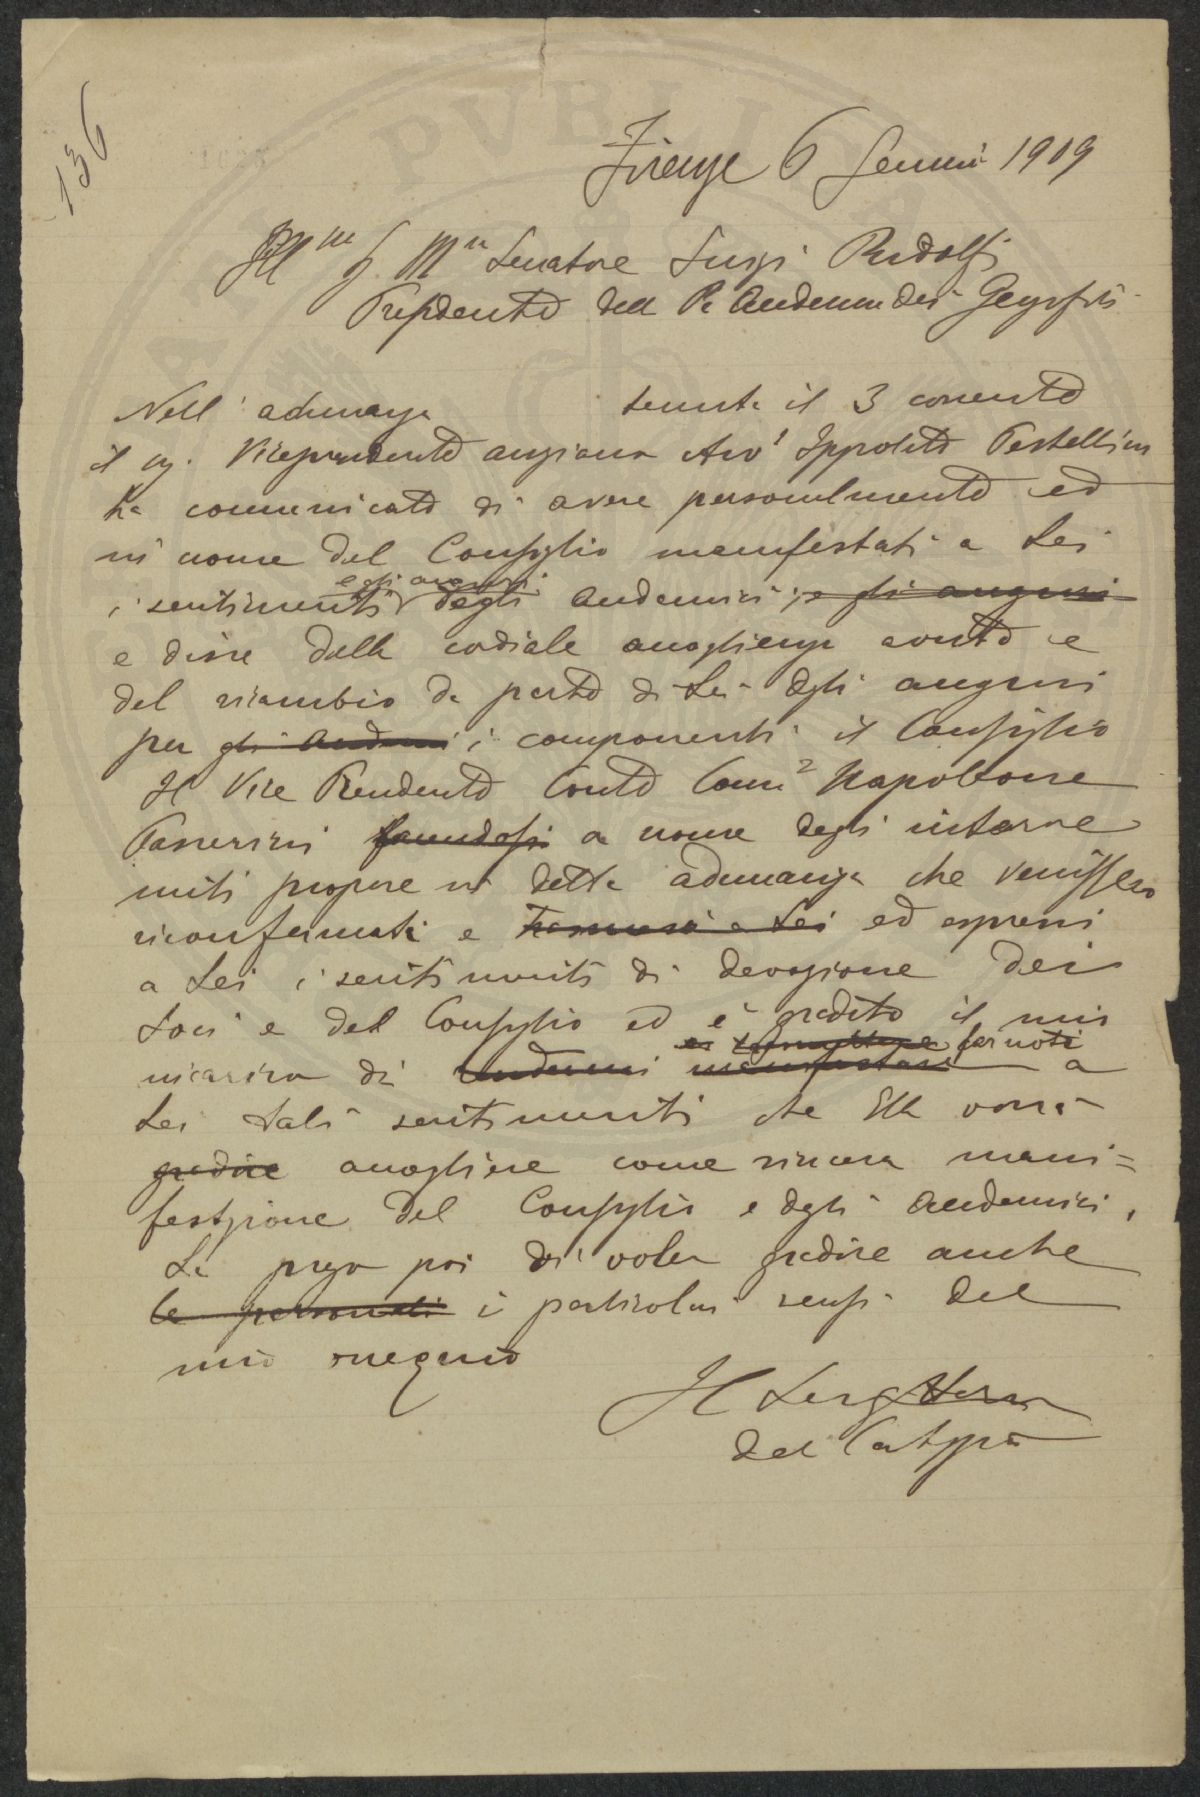 136
Firenze 6 Gennaio 1909
Ill.mo S. M.se Senatore Luigi Ridolfi
Presidente della R. Accademia dei Georgofili
Nell'adunanza tenuta il 3 corrente
il sig. Vicepresidente anziano Avv. Ippolito Pestellini
ha comunicato di avere personalmente ed
in nome del Consiglio manifestati a Lei
e gli auguri
i sentimenti degli Accademici ; e gli auguri
e disse della cordiale accoglienza avuta e
del ricambio da parte di Lei degli auguri
per gli Accademici i componenti il Consiglio
Il Vice Presidente Conte Comm. Napoleone
Passerini facendosi a nome degli interve
nuti propose in detta adunanza che venissero
riconfermati e trasmessi a Lei ed espressi
a Lei i sentimenti di devozione dei
Soci e del Consiglio ed è gradito il mio
ed trasmettere far noti
incarico di rendermi manifestare a
Lei tali sentimenti che Ella vorrà
gradire accogliere come sincera mani=
festazione del Consiglio e degli Accademici,
La prego poi di voler gradire anche
le personali i particolari sensi del
mio ossequio
Il Seg
del